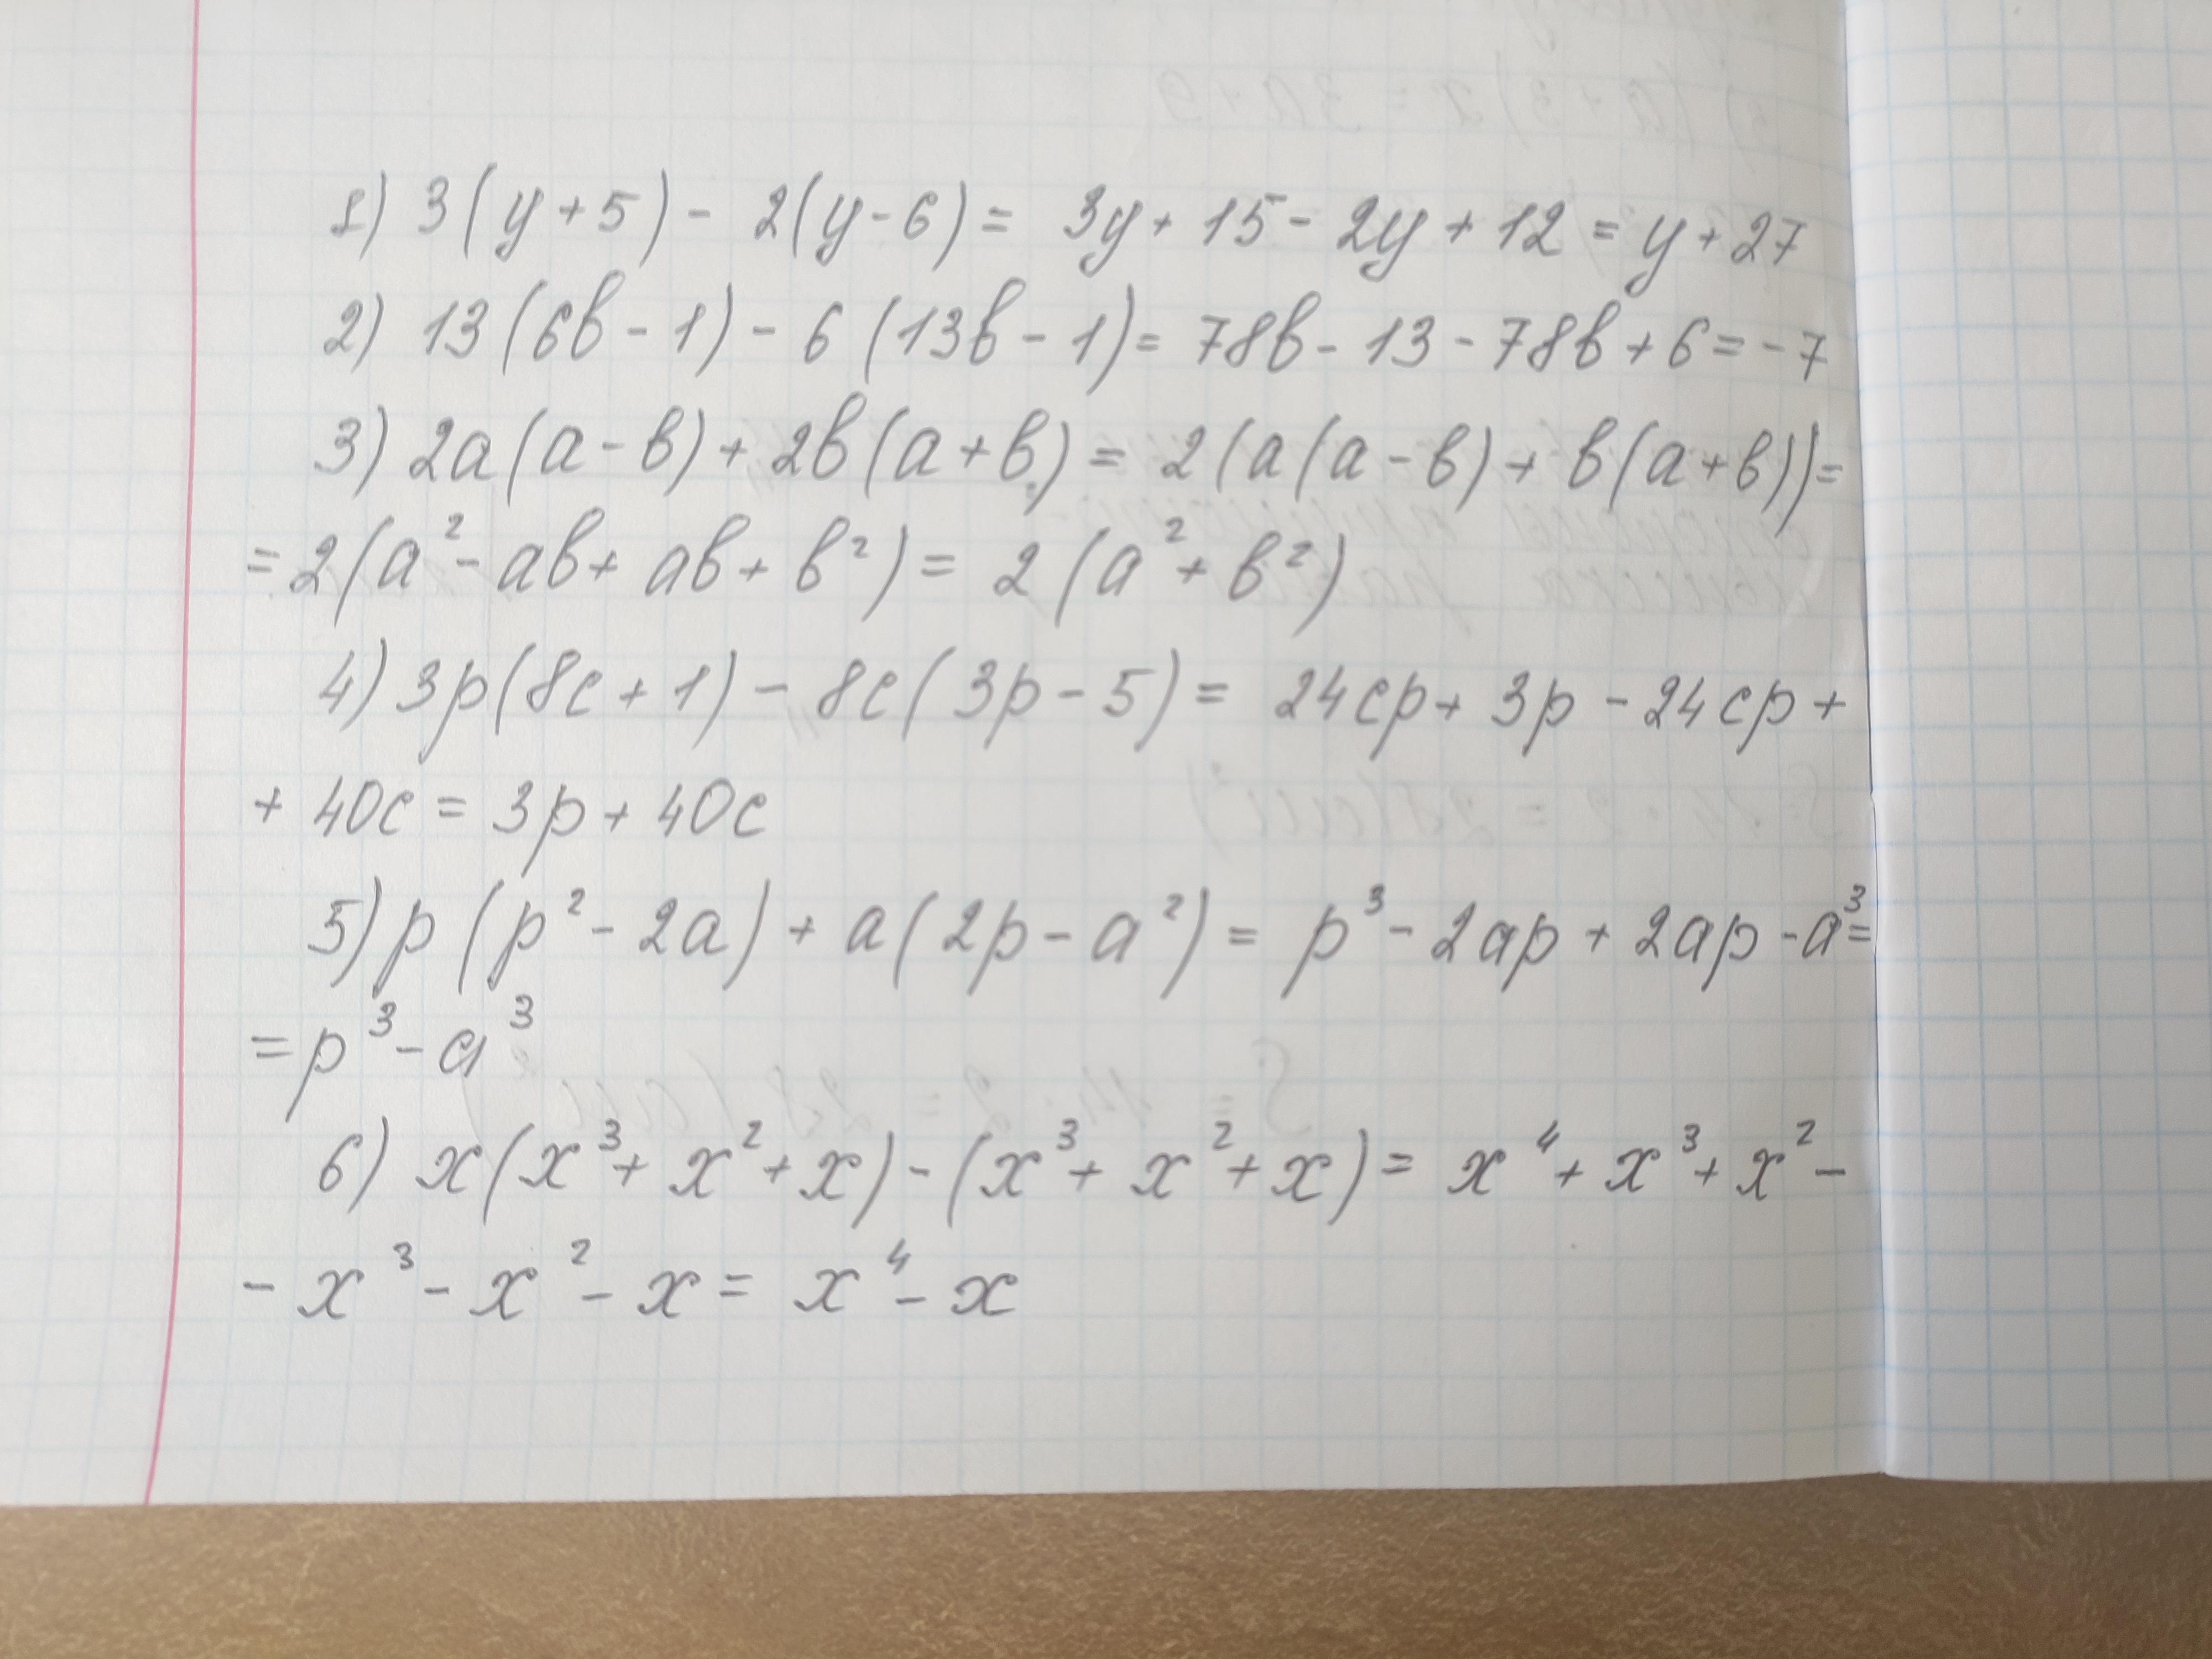 1) 3(y+5) - 2(y-6) = 3y + 15 - 2y + 12 = y + 27
2) 13(6b - 1) - 6(13b - 1) = 78b - 13 - 78b + 6 = -7
3) 2a(a-b) + 2b(a+b) = 2(a(a-b) + b(a+b)) =
= 2(a² - ab + ab + b²) = 2(a² + b²)
4) 3p(8c+1) - 8c(3p-5) = 24cp + 3p - 24cp +
+ 40c = 3p + 40c
5) p(p² - 2a) + a(2p - a²) = p³ - 2ap + 2ap - a³ =
= p³ - a³
6) x(x³ + x² + x) - (x³ + x² + x) = x⁴ + x³ + x² -
- x³ - x² - x = x⁴ - x